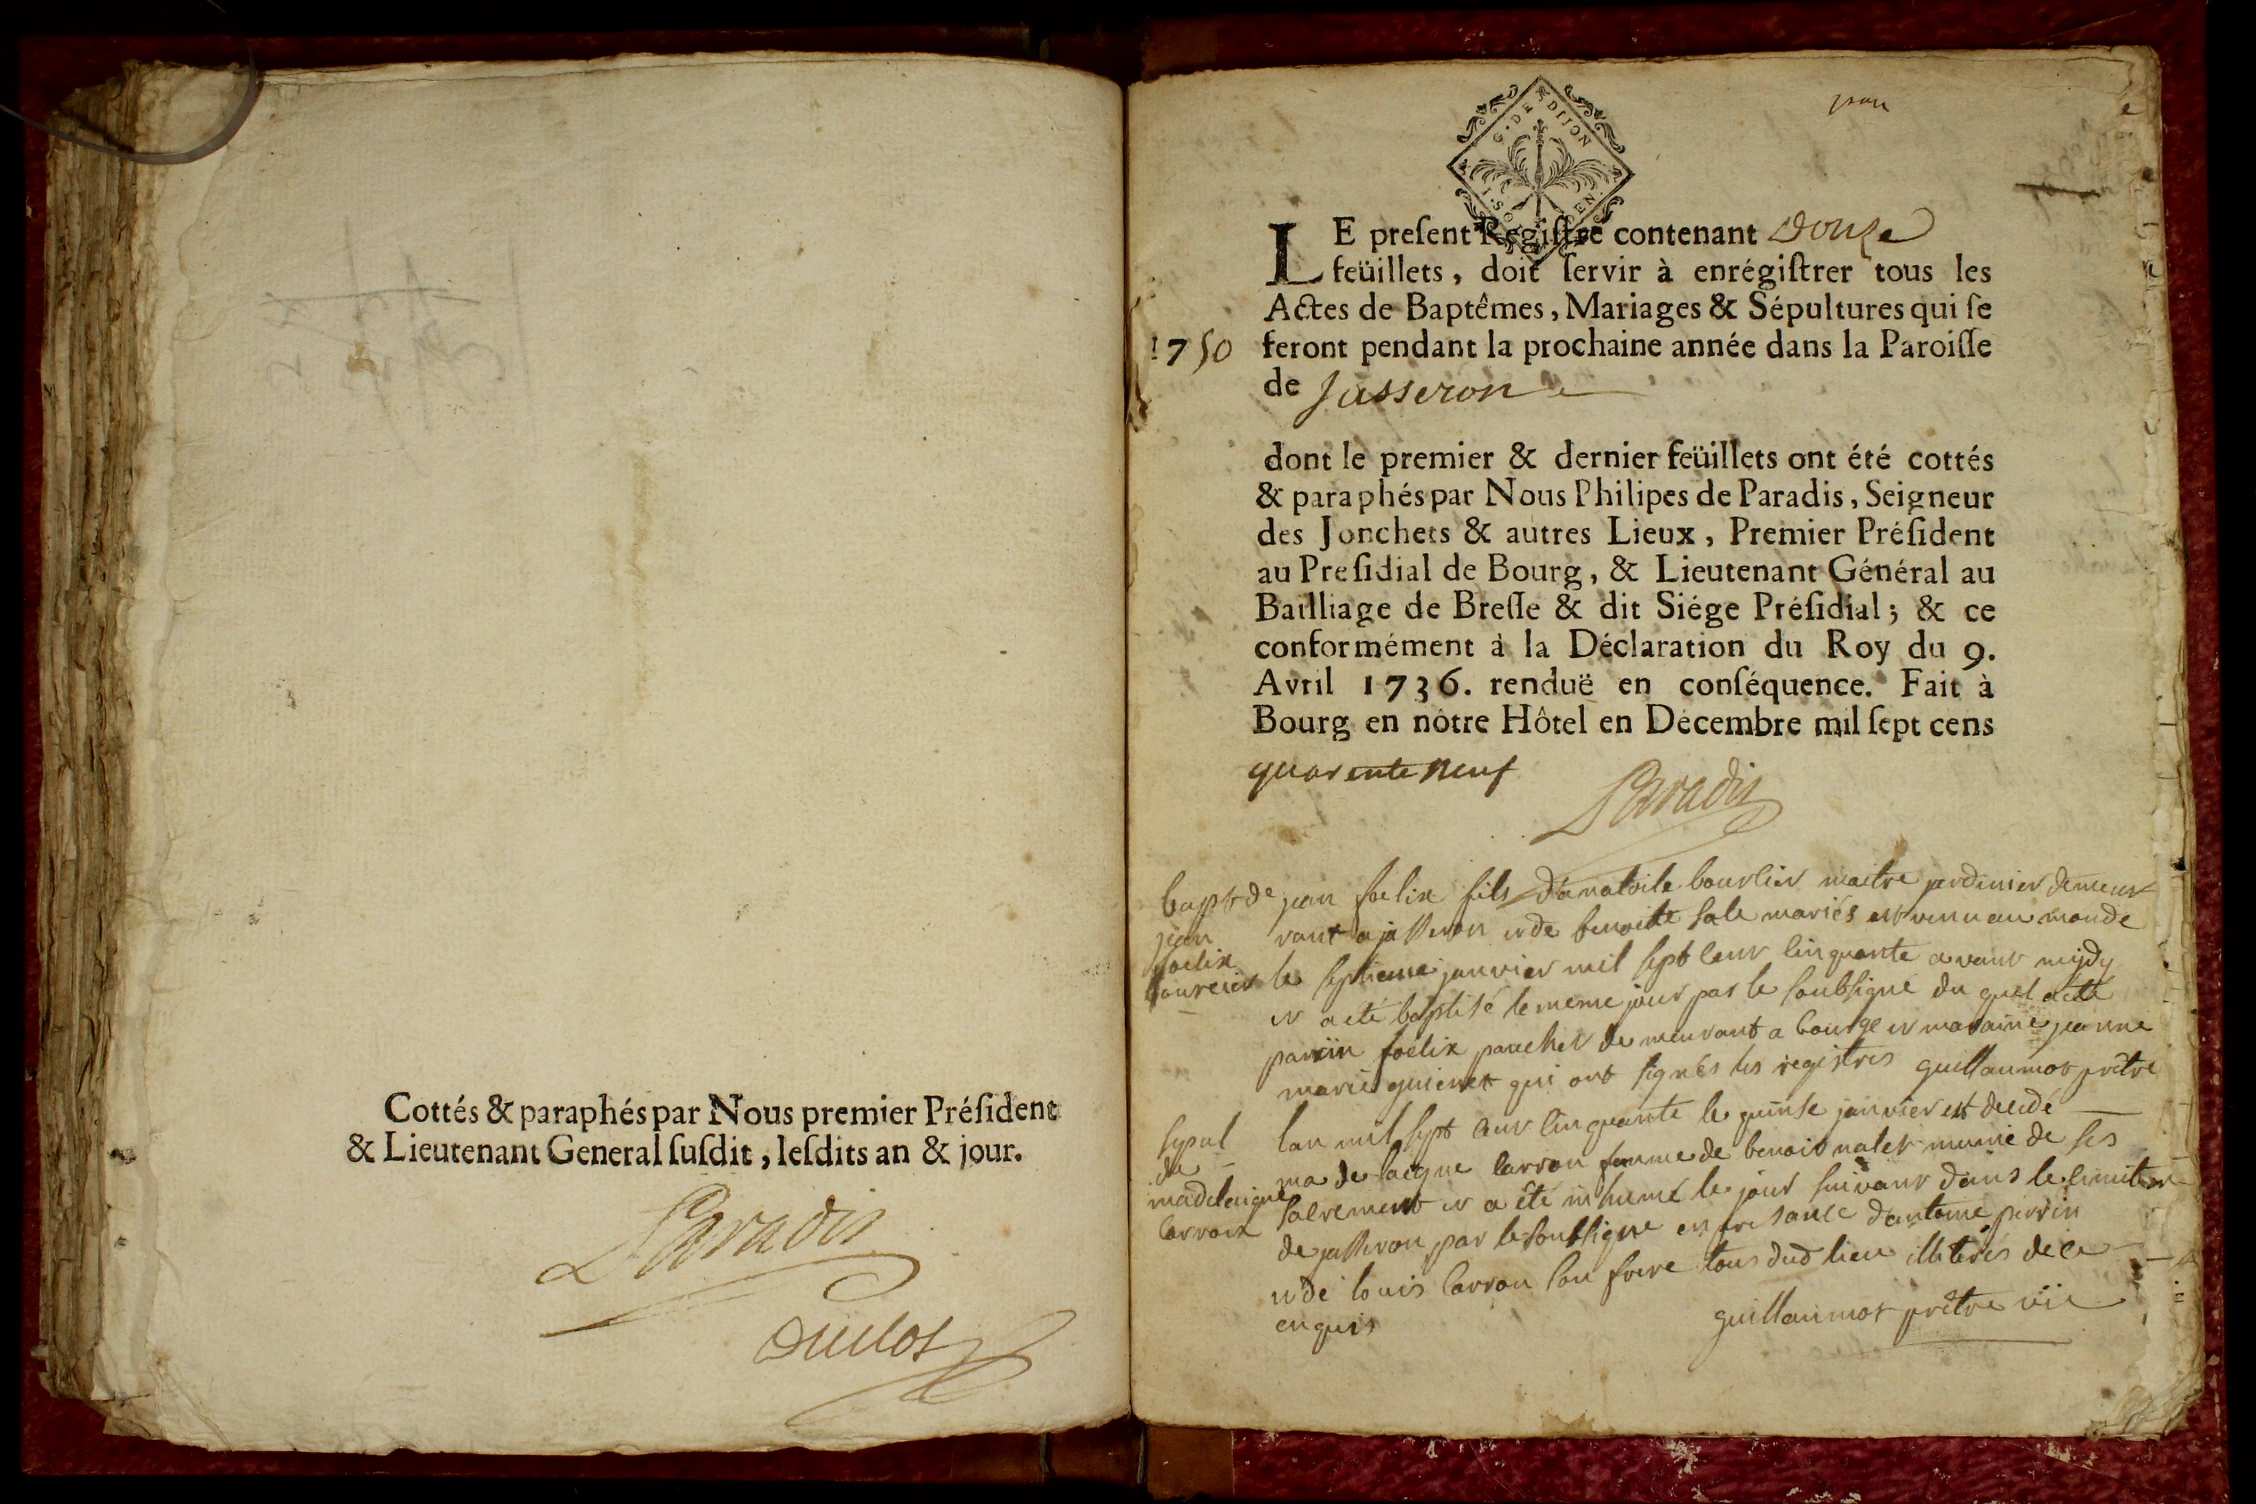 Cottés & paraphés par Nous premier Préſident
& Lieutenant General ſuſdit, leſdits an & jour.
Paradis
Duclos
G. DE DIJON
LE preſent Regiſtre contenant Douze
feüillets, doit ſervir à enrégiſtrer tous les
Actes de Baptêmes, Mariages & Sépultures qui ſe
1750 feront pendant la prochaine année dans la Paroiſſe
de Jasseron
dont le premier & dernier feüillets ont été cottés
& paraphés par Nous Philipes de Paradis, Seigneur
des Jonchets & autres Lieux, Premier Préſident
au Preſidial de Bourg, & Lieutenant Général au
Bailliage de Breſſe & dit Siége Préſidial; & ce
conformément à la Déclaration du Roy du 9.
Avril 1736. renduë en conſéquence. Fait à
Bourg en nôtre Hôtel en Decembre mil ſept cens
quarente neuf
Paradis
bapt de
jean
foelix
bourlier
jean foelix fils d'anatoile bourlier maitre jardinier demeu
rant a jasseron et de benoite sale mariés est venu au monde
le septieme janvier mil sept cent cinquante avant mydy
et a été baptisé le meme jour par le soubsigné du quel a été
parein foelix demeurant a bourg et maraine jeanne
marie qui ont signés les registres guillaumot prêtre
sepul
de
madelaigne
carron
lan mil sept cent cinquante le quinse janvier est decede
madelaigne carron femme de benoit munie de ses
sacrement et a été inhumé le jour suivant dans le cimiter
de jasseron par le soubsigné en presance d'antoine perrin
et de louis carron son frere tous dud lieu illiterés de ce
enquis
guillaumot prêtre vic